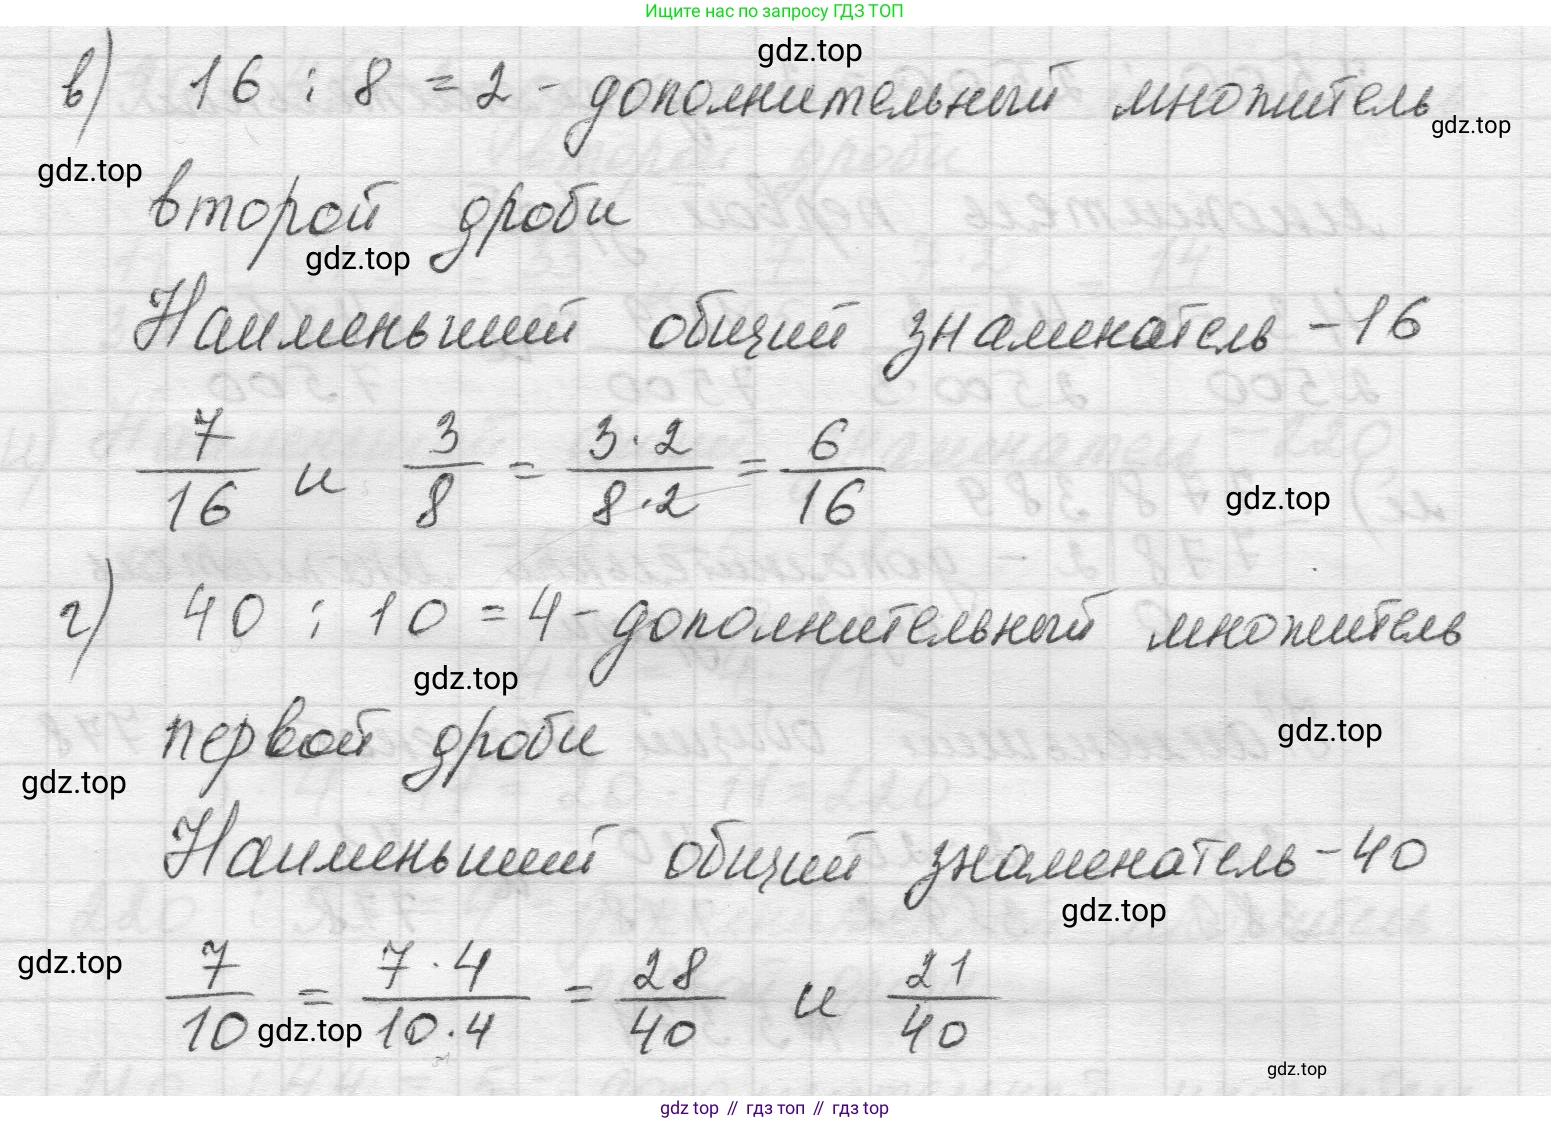 Ищите нас по запросу ГДЗ ТОП
gdz.top
в) 16 : 8 = 2 - дополнительный множитель
gdz.top
gdz.top
второй дроби
gdz.top
Наименьший общий знаменатель - 16
7/16 и 3/8 = 3·2/8·2 = 6/16
gdz.top
г) 40 : 10 = 4 - дополнительный множитель
gdz.top
первой дроби
gdz.top
gdz.top
Наименьший общий знаменатель - 40
gdz.top
gdz.top
7/10 = 7·4/10·4 = 28/40 и 21/40
gdz.top
gdz.top
gdz.top // гдз топ // гдз top